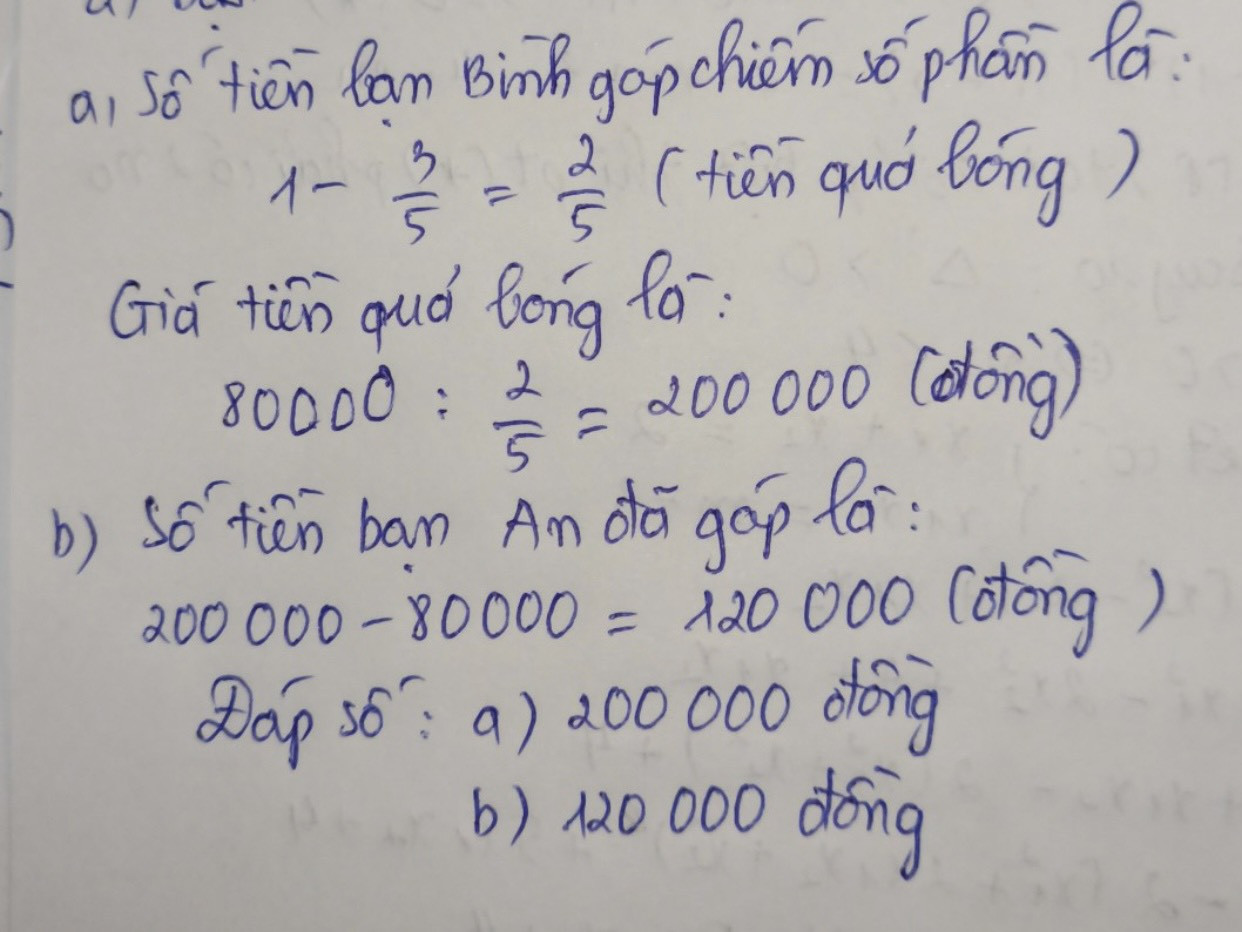 a, Số tiền bạn Bình góp chiếm số phần là:
1 - 3/5 = 2/5 (tiền quả bóng)
Giá tiền quả bóng là:
80000 : 2/5 = 200 000 (đồng)
b) Số tiền bạn An đã góp là:
200 000 - 80000 = 120 000 (đồng)
Đáp số: a) 200 000 đồng
b) 120 000 đồng